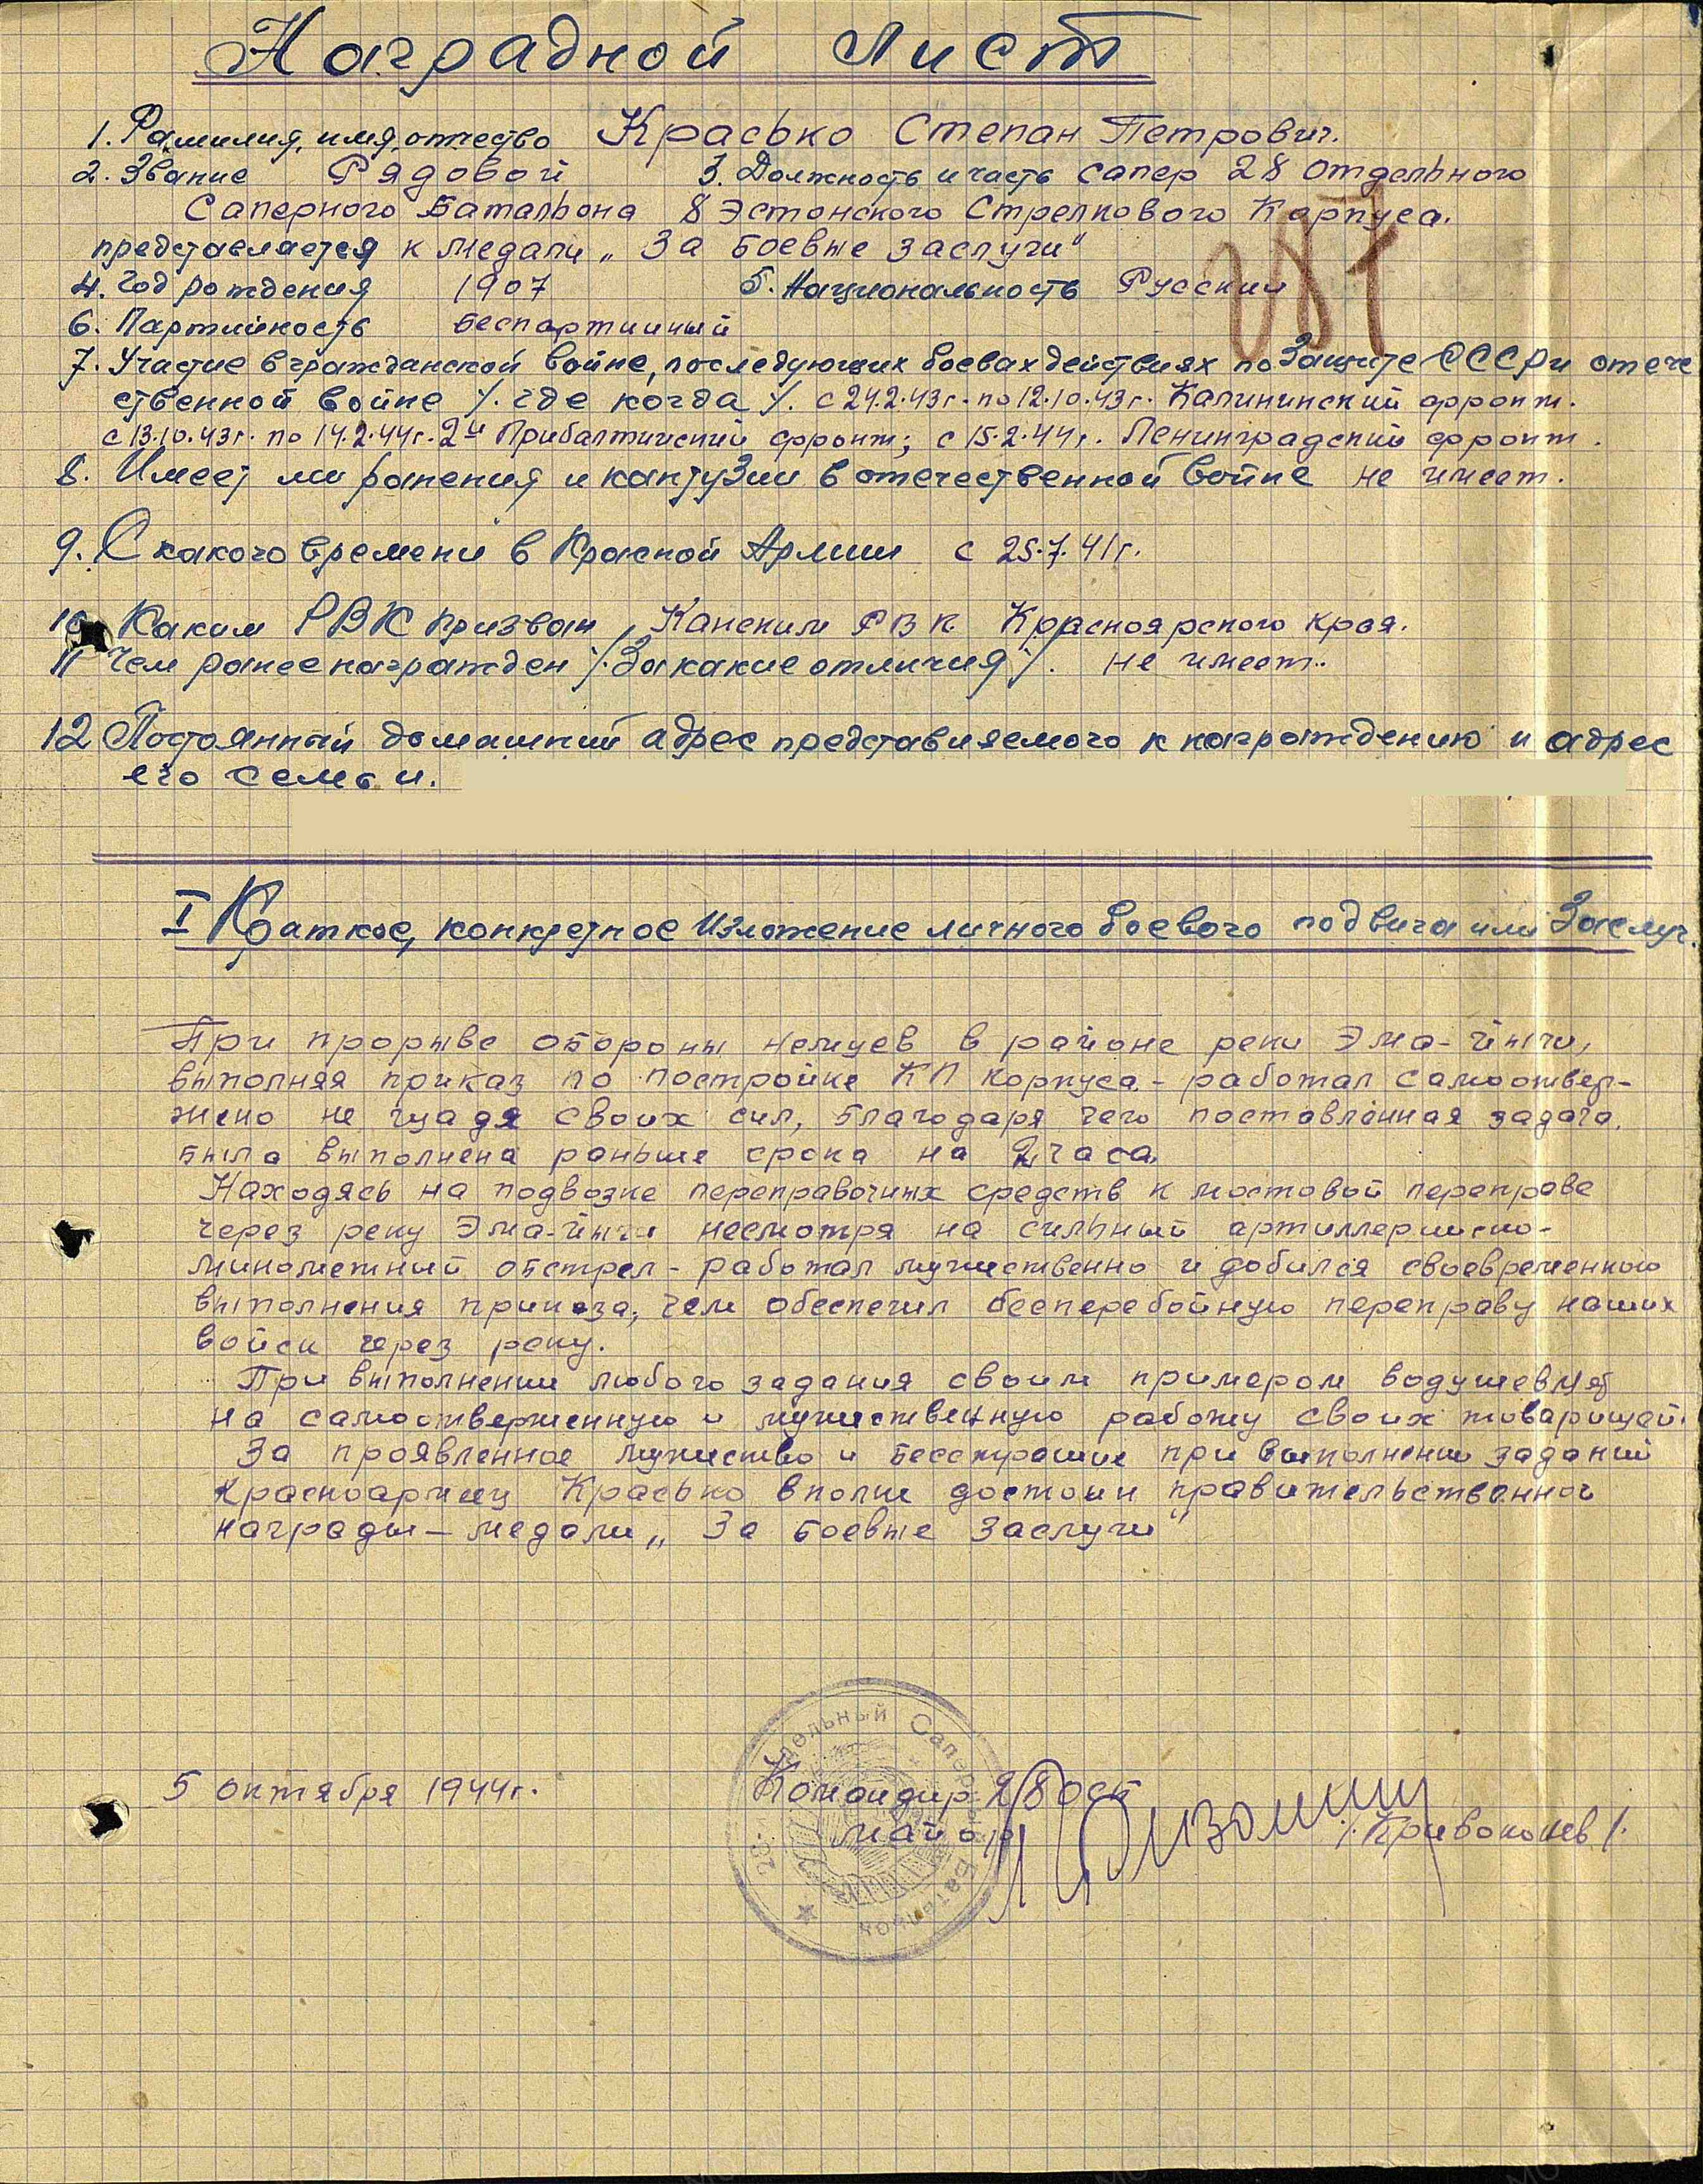 Наградной лист
1. Фамилия, имя, отчество Красько Степан Петрович.
2. Звание Рядовой 3. Должность и часть сапер 28 отдельного
Саперного Батальона 8 Эстонского Стрелкового Корпуса.
представляется к медали „За боевые заслуги"
4. Год рождения 1907 5. Национальность Русский
287
6. Партийность беспартийный
7. Участие в гражданской войне, последующих боевах действиях по защите СССР и отече
ственной войне /. где когда /. с 24.2.43г. по 12.10.43г. Калининский фронт.
с 13.10.43г. по 14.2.44г. 2й Прибалтийский фронт; с 15.2.44г. Ленинградский фронт.
8. Имеет ли ранения и контузии в отечественной войне не имеет.
9. С какого времени в Красной Армии с 25.7.41г.
10 Каким РВК призван Канским РВК Красноярского края.
11 Чем ранее награжден /. За какие отличия /. не имеет.
12 Постоянный домашний адрес представляемого к награждению и адрес
его семьи.
I Краткое, конкретное изложение личного боевого подвига или заслуг.
При прорыве обороны немцев в районе реки Эма-Йыги,
выполняя приказ по постройке КП корпуса - работал самоотвер-
жено не щадя своих сил, благодаря чего поставленная задача
была выполнена раньше срока на 2 часа.
Находясь на подвозке переправочных средств к мостовой переправе
через реку Эма-Йыги несмотря на сильный артиллерийско-
минометный обстрел - работал мужественно и добился своевременного
выполнения приказа, чем обеспечил бесперебойную переправу наших
войск через реку.
При выполнении любого задания своим примером водушевлял
на самоотверженную и мужественную работу своих товарищей.
За проявленное мужество и бесстрашие при выполнении заданий
красноармеец Красько вполне достоин правительственной
награды — медали „За боевые заслуги"
5 октября 1944г. Командир 28 осб
майор /. Привоконев /.
28-й Отдельный Саперный Батальон